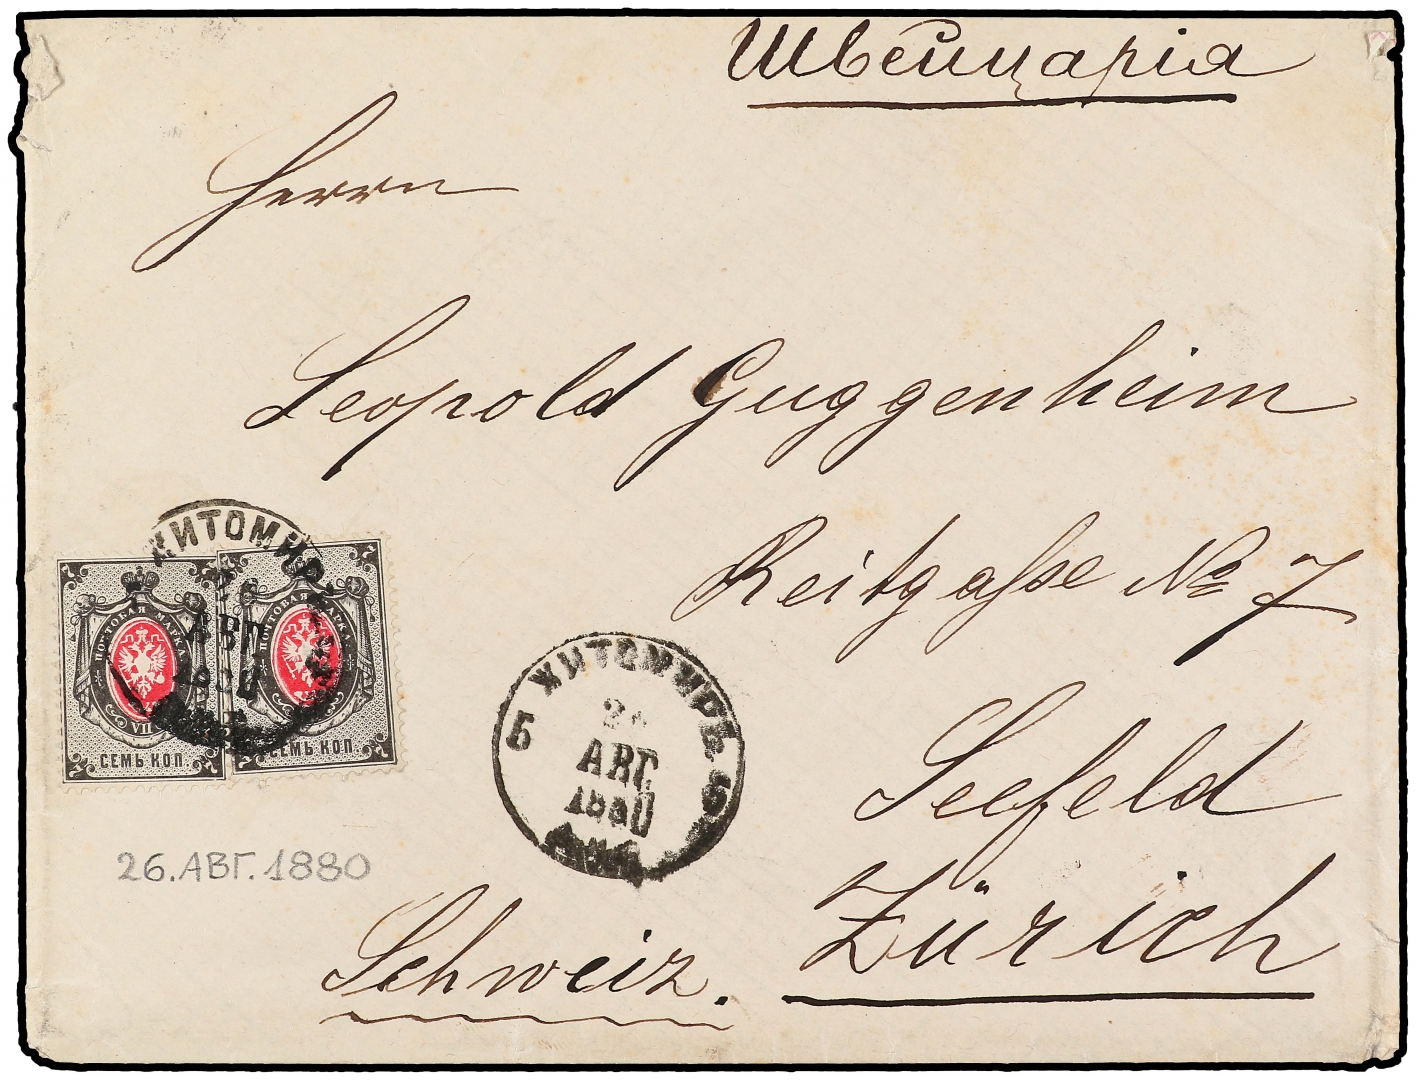 Швейцарія
Herrn
Leopold Guggenheim
Reitgasse No 7
Seefeld
Zürich
Schweiz.
ЖИТОМИРЪ
26
АВГ
1880
ПОЧТОВАЯ МАРКА
7
VII
СЕМЬ КОП.
ПОЧТОВАЯ МАРКА
7
7
СЕМЬ КОП.
ЖИТОМИРЪ
Б Б
АВГ.
1880
26.АВГ.1880